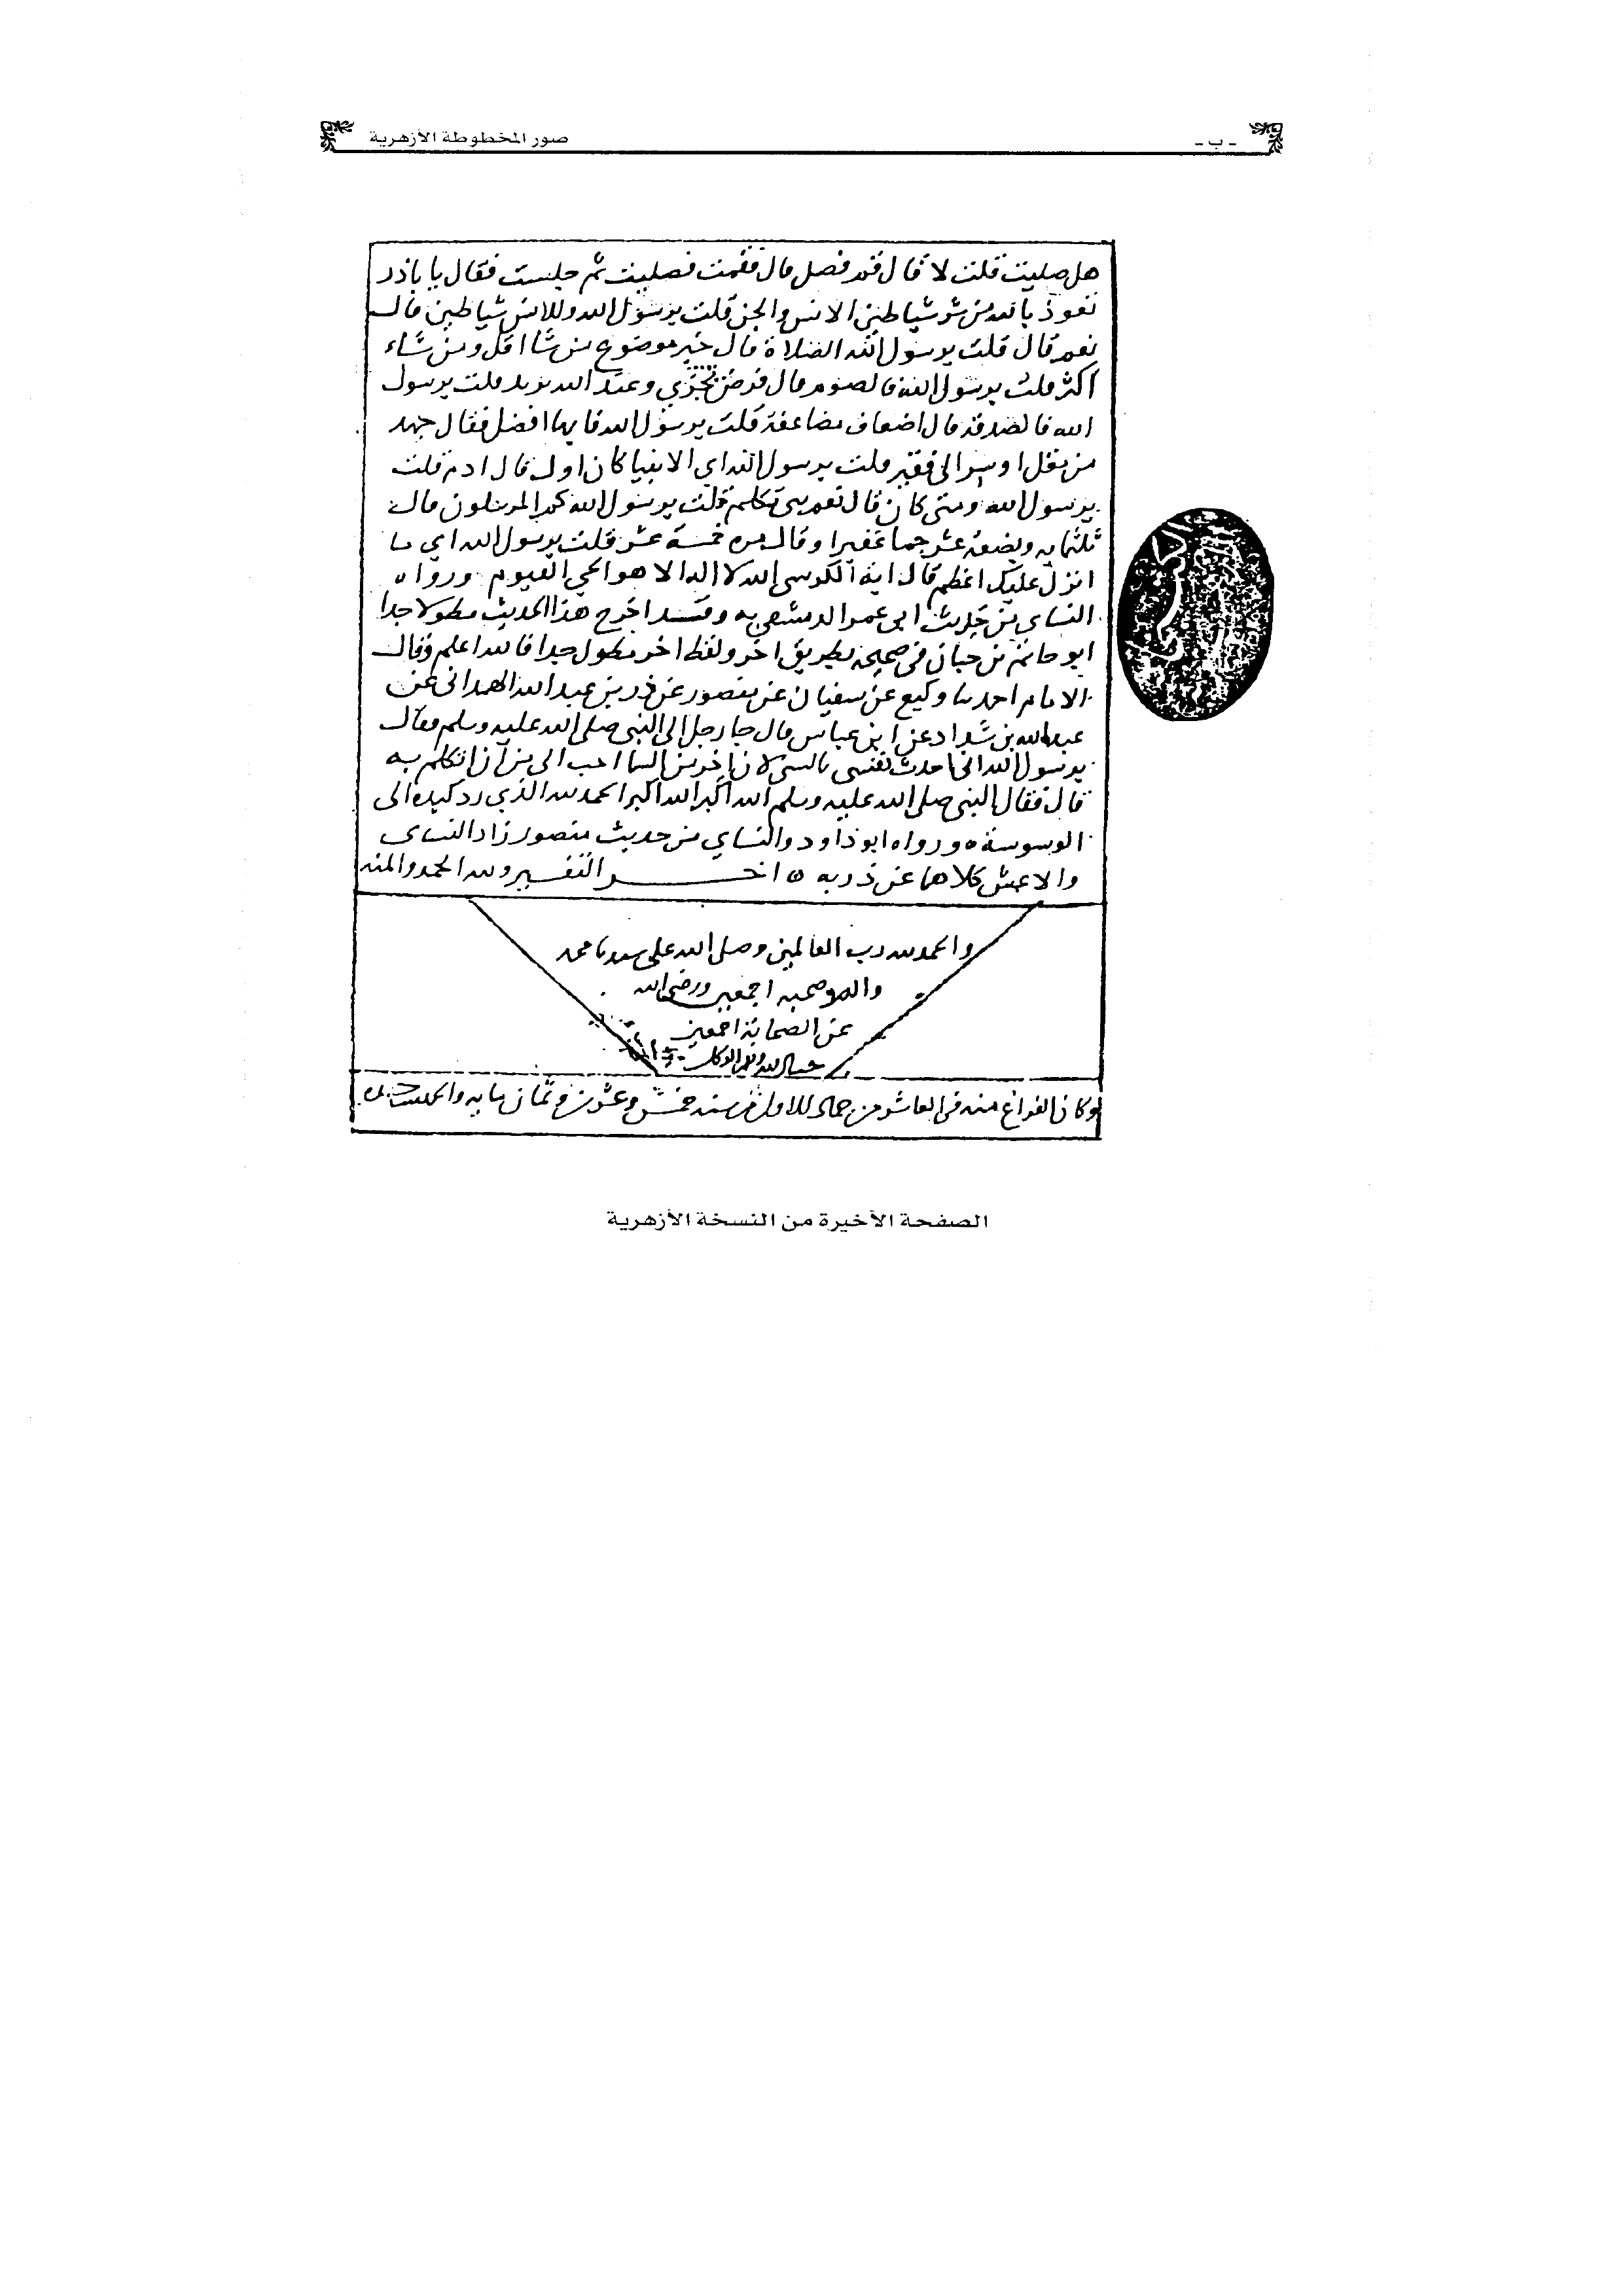 - ب -
صور المخطوطة الأزهرية
هل صليت قلت لا قال قم فصل قال فقمت فصليت ثم جلست فقال يا باذر
تعوذ بالله من شر شياطين الانس والجن قلت يرسول الله وللانس شياطين قال
نعم قال قلت يرسول الله الصلاة قال خير موضوع من شا اقل ومن شاء
اكثر قلت يرسول الله فالصوم قال فرض مجزي وعند الله مزيد قلت يرسول
الله فالصدقة قال اضعاف مضاعفة قلت يرسول الله فايها افضل فقال جهد
من مقل او سر الى فقير قلت يرسول الله اي الانبيا كان اول قال ادم قلت
يرسول الله ونبي كان قال نعم نبي مكلم قلت يرسول الله كم المرسلون قال
ثلثمايه وبضعة عشر جما غفيرا وقال مره خمسة عشر قلت يرسول الله اي ما
انزل عليك اعظم قال اية الكرسي الله لا اله الا هو الحي القيوم ورواه
النساي من حديث ابي عمر الدمشقي به وقد اخرج هذا الحديث مطولا جدا
ابو حاتم بن حبان في صحيحه بطريق اخر ولفظ اخر مطول جدا فالله اعلم وقال
الامام احمد سا وكيع عن سفيان عن منصور عن ذر بن عبد الله الهمداني عن
عبد الله بن شداد عن ابن عباس قال جا رجل الى النبي صلى الله عليه وسلم فقال
يرسول الله اني احدث نفسي بالشي لان اخر من السما احب الي من ان اتكلم به
قال فقال النبي صلى الله عليه وسلم الله اكبر الله اكبر الحمد لله الذي رد كيده الى
الوسوسة ه ورواه ابو داود والنساي من حديث منصور زاد النساي
والاعمش كلاهما عن ذر به ه اخر التفسير ولله الحمد والمنه
والحمد لله رب العالمين وصلى الله على سيدنا محمد
واله وصحبه اجمعين ورضي الله
عن الصحابة اجمعين
حسبنا الله ونعم الوكيل
وكان الفراغ منه في العاشر من جماد الاول من سنه خمس وعشرين وثمان مايه والحمد لله
الصفحة الأخيرة من النسخة الأزهرية